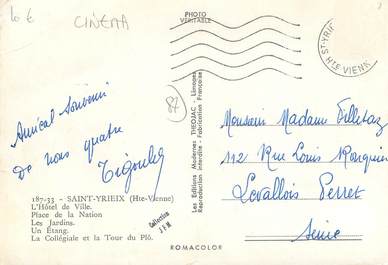 10 €
CINEMA
PHOTO
VÉRITABLE
ST-YRIE
Hte VIENNE
87
Amical Souvenir
De nous quatre
Monsieur Madame
112 Rue Louis Rouquier
Levallois Perret
Seine
Les Editions Modernes THEOJAC - Limoges
Reproduction interdite - Fabrication Française
187-33 - SAINT-YRIEIX (Hte-Vienne)
L'Hôtel de Ville.
Place de la Nation
Les Jardins.
Un Étang.
La Collégiale et la Tour du Plô.
Collection
J F M
ROMACOLOR